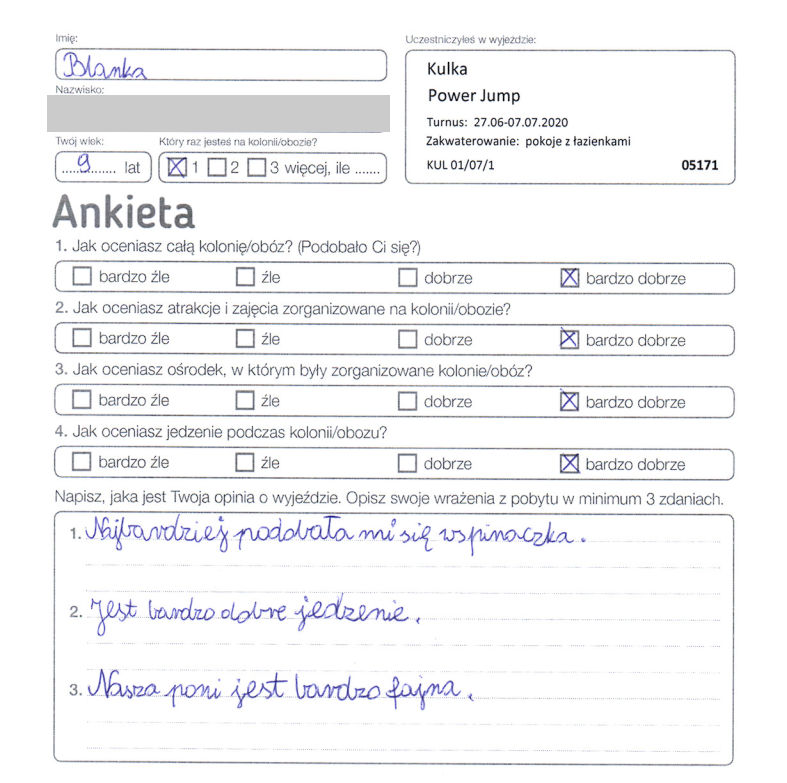 Imię:
Blanka
Nazwisko:
Twój wiek:
Który raz jesteś na kolonii/obozie?
.....9....... lat
1 2 3 więcej, ile .......
Uczestniczyłeś w wyjeździe:
Kulka
Power Jump
Turnus: 27.06-07.07.2020
Zakwaterowanie: pokoje z łazienkami
KUL 01/07/1 05171
Ankieta
1. Jak oceniasz całą kolonię/obóz? (Podobało Ci się?)
bardzo źle źle dobrze bardzo dobrze
2. Jak oceniasz atrakcje i zajęcia zorganizowane na kolonii/obozie?
bardzo źle źle dobrze bardzo dobrze
3. Jak oceniasz ośrodek, w którym były zorganizowane kolonie/obóz?
bardzo źle źle dobrze bardzo dobrze
4. Jak oceniasz jedzenie podczas kolonii/obozu?
bardzo źle źle dobrze bardzo dobrze
Napisz, jaka jest Twoja opinia o wyjeździe. Opisz swoje wrażenia z pobytu w minimum 3 zdaniach.
1. Najbardziej podobała mi się wspinaczka.
2. Jest bardzo dobre jedzenie.
3. Nasza poni jest bardzo fajna.